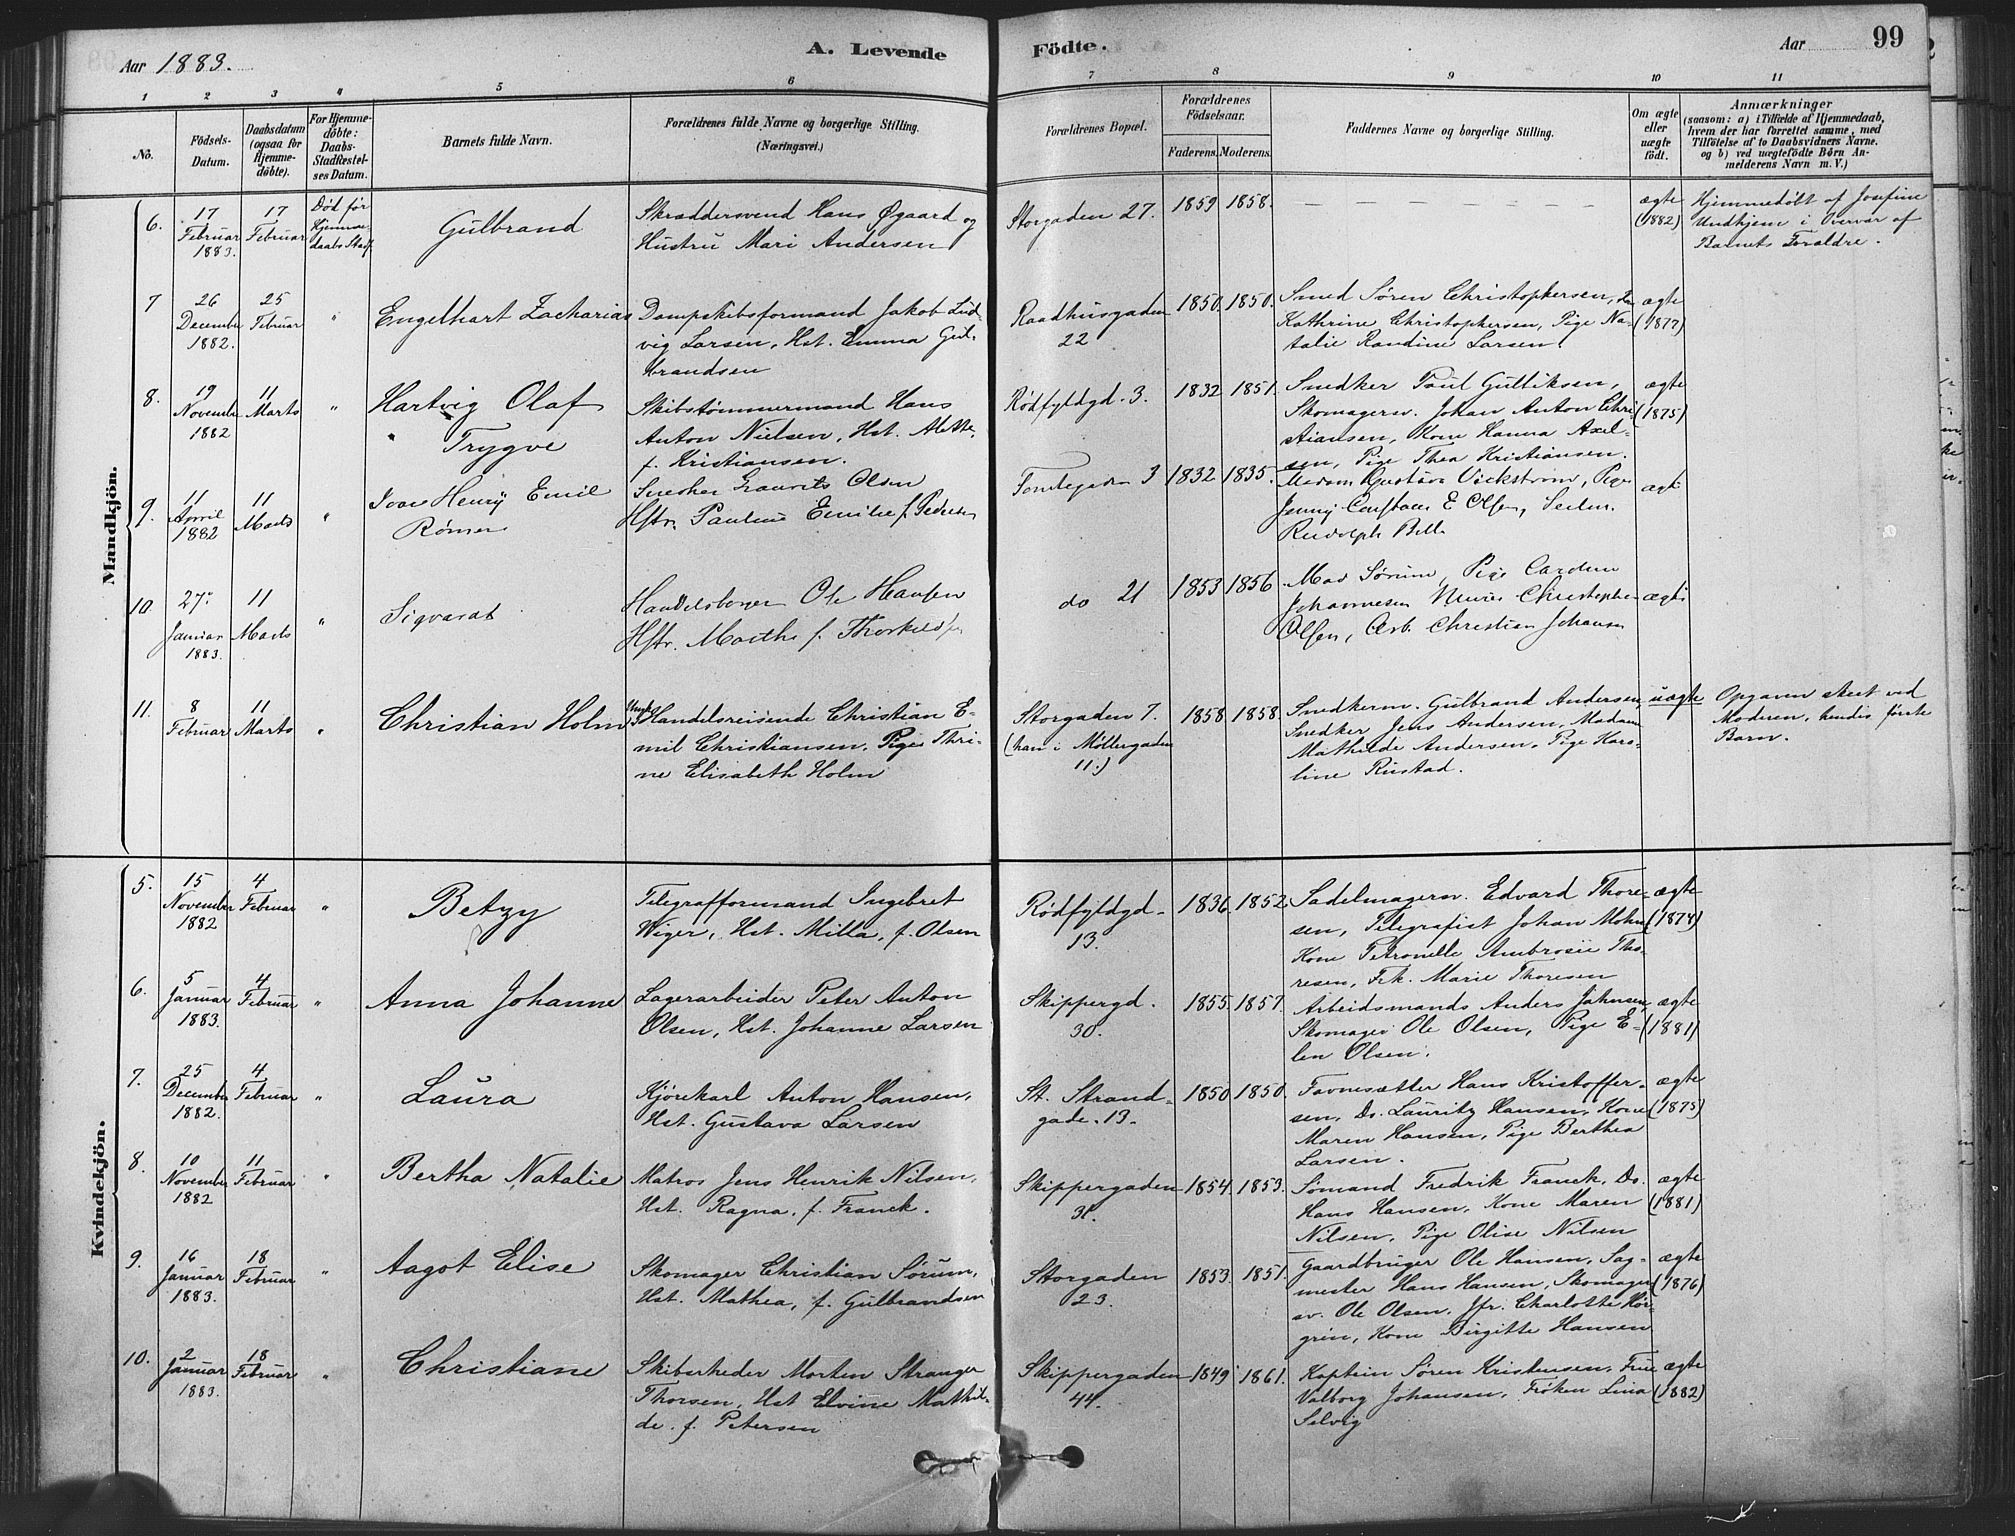 Aar 1883.
A. Levende
Födte.
Aar
99
1 2 3 4 5 6 7 8 9 10 11
No.
Födsels-
Datum.
Daabsdatum
(ogsaa for
Hjemme-
döbte).
For Hjemme-
döbte:
Daabs-
Stadfestel-
ses Datum.
Barnets fulde Navn.
Forældrenes fulde Navne og borgerlige Stilling.
(Næringsvei.)
Forældrenes Bopæl.
Forældrenes
Födselsaar.
Faderens. Moderens.
Faddernes Navne og borgerlige Stilling.
Om ægte
eller
uægte
födt.
Anmærkninger
(saasom: a) i Tilfælde af Hjemmedaab,
hvem der har forrettet samme, med
Tilföielse af to Daabsvidners Navne.
og b) ved uægtefödte Börn An-
melderens Navn m. V.)
Mandkjön.
6.
17
Februar
1883.
17
Februar
Død før
Hjemme-
daabs Stadf.
Gulbrand
Skræddersvend Hans Øgaard og
Hustru Mari Andersen
Storgaden 27.
1859 1858.
ægte
(1882)
Hjemmedöbt af Josefine
Undhjem i Overvær af
Barnets Forældre.
7
26
December
1882.
25
Februar
"
Engelhart Zacharias
Dampskibsformand Jakob Lud-
vig Larsen, Hst. Emma Gul-
brandsen
Raadhusgaden
22
1850. 1850.
Smed Søren Christophersen,
Kathrine Christophersen, Pige Na-
talie Randine Larsen.
ægte
(1877)
8.
19
November
1882
11
Marts
"
Hartvig Olaf
Trygve
Skibstømmermand Hans
Anton Nielsen, Hst. Alette,
f. Kristiansen.
Rødfyldgd. 3.
1832 1851.
Snedker Paul Gulliksen,
Skomagersv. Johan Anton Chri-
stiansen, Kone Hanna Axel-
sen, Pige Thea Kristiansen.
ægte
(1875)
9.
11
April
1882
11
Marts
"
Ivar Henry Emil
Rømer
Olsen
Hstr. Pauline Emilie f. Pedersen
3
1832 1835.
Madam Gustava Vickstrøm, Pige
Jenny E Olsen,
Rudolph
ægte
10.
27
Januar
1883.
11
Marts
"
Sigvardt
Handelsborger Ole Hansen
Hstr. Marthe f. Thorkildsen
do 21
1853 1856
Mad Sørum, Pige
Johannesen Murer Christopher
Olsen, Arb. Christian Johansen
ægte
11.
8
Februar
11
Marts
"
Christian Holm
Ungk. Handelsreisende Christian E-
mil Christiansen, Pige Thri-
ne Elisabeth Holm
Storgaden 7.
(han i Møllergaden
11.)
1858 1858
Snedkerm. Gulbrand Andersen
Snedker Jens Andersen, Madam
Mathilde Andersen, Pige Karo-
line Rustad.
uægte
Opgaven skeet ved
Moderen, hendis første
Barn.
Kvindekjön.
5.
15
November
1882
4
Februar
"
Betzy
Telegrafformand Ingebret
Wiger, Hst. Milla, f. Olsen
Rødfyldgd.
13.
1836. 1852.
Sadelmagersv. Edvard Thore-
sen, Telegrafist Johan Mohn
Kone Petronelle Ambrosie Tho-
resen, Frk. Marie Thoresen
ægte
(1874)
6.
5
Januar
1883.
4
Februar
"
Anna Johanne
Lagerarbeider Peter Anton
Olsen, Hst. Johanne Larsen
Skippergd.
30.
1855. 1857.
Arbeidsmands Anders Jahnsen,
Skomager Ole Olsen, Pige E-
len Olsen.
ægte
(1881)
7.
25
December
1882.
4
Februar
"
Laura
Kjörekarl Anton Hansen,
Hst. Gustava Larsen
St. Strand-
gade. 13.
1850 1850.
Favnesætter Hans Kristoffer-
sen, Do. Lauritz Hansen, Kone
Maren Hansen, Pige Berthea
Larsen.
ægte
(1875)
8.
10
November
1882
11
Februar
"
Bertha Natalie
Matros Jens Henrik Nilsen,
Hst. Ragna, f. Franck.
Skippergaden
31.
1854. 1853.
Sömand Fredrik Franck, Do.
Hans Hansen, Kone Maren
Nilsen, Pige Olise Nilsen
ægte
(1881)
9.
16
Januar
1883.
18
Februar
"
Aagot Elise
Skomager Christian Sørum,
Hst. Mathea, f. Gulbrandsen
Storgaden
23.
1853. 1851.
Gaardbruger Ole Hansen, Sag-
mester Hans Hansen, Skomager
sv. Ole Olsen, Jfr. Charlotte Hør-
grén, Kone Birgitte Hansen
ægte
(1876)
10.
2
Januar
1883.
18
Februar
"
Christiane
Skibsrheder Morten Stranger
Thorsen, Hst Elvine Mathil-
de f. Petersen
Skippergaden
44.
1849 1861.
Kaptein Søren Kristensen, Frue
Valborg Johansen, Frøken Lina
Selvig
ægte
(1882)